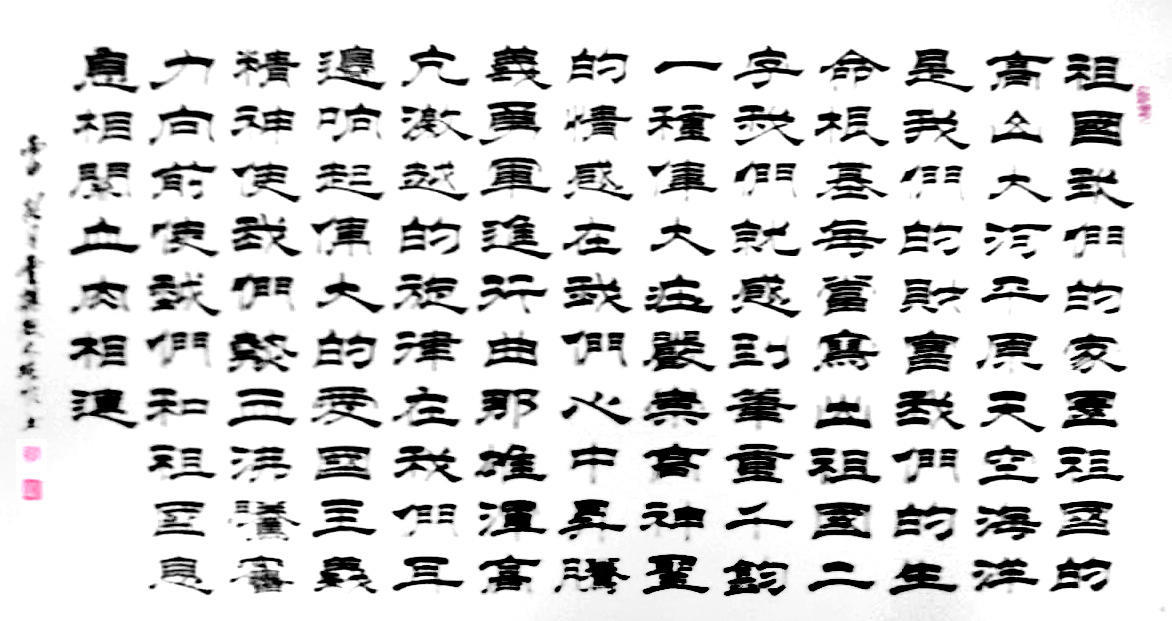 祖國我們的家園祖國的
高山大河平原天空海洋
是我們的財富我們的生
命根基每當寫出祖國二
字我們就感到筆重千鈞
一種偉大莊嚴崇高神聖
的情感在我們心中昇騰
義勇軍進行曲那雄渾高
亢激越的旋律在我們耳
邊响起偉大的愛國主義
精神使我們熱血沸騰奮
力向前使我們和祖國息
息相關血肉相連